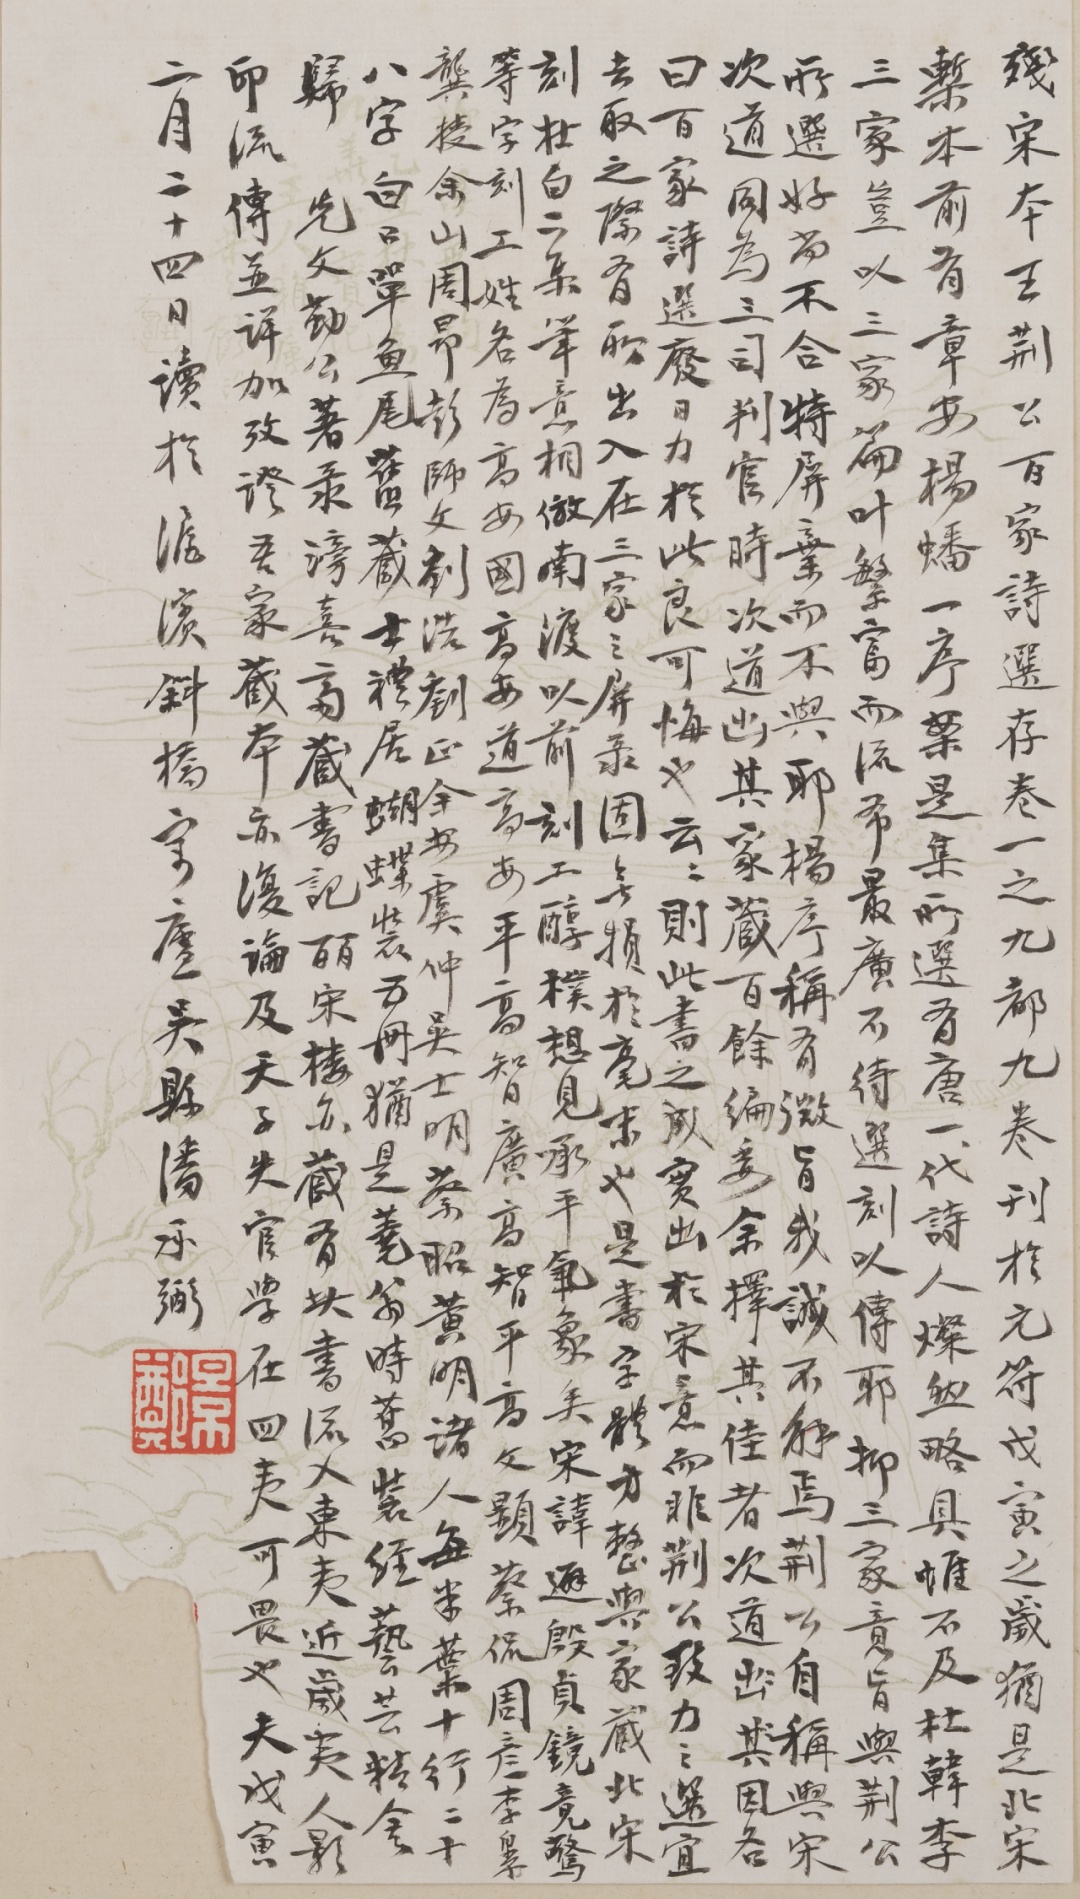 殘宋本王荊公百家詩選存卷一之九都九卷刊於元符戊寅之歲猶是北宋
槧本前有章安楊蟠一序案是集所選有唐一代詩人燦然略具惟不及杜韓李
三家豈以三家篇叶繁富而流布最廣不待選刻以傳耶抑三家意旨與荊公
所選好尚不合特屏棄而不與耶楊序稱有微旨我誠不解焉荊公自稱與宋
次道同為三司判官時次道出其家藏百餘編委余擇其佳者次道出其因名
曰百家詩選廢日力於此良可悔也云〻則此書之成實出於宋意而非荊公致力之選宜
去取之際有所出入在三家之屏录固無損於毫末也是書字體方整與家藏北宋
刻杜白二集筆意相倣南渡以前刻工醇樸想見承平氣象矣宋諱避殷貞鏡竟驚
等字刻工姓名為高安國高安道高安平高智廣高智平高文顯蔡侃周彥李皋
龔授余山周昂彭師文劉浩劉正余安虞仲吳士明蔡昭黃明諸人每半葉十行二十
八字白口單魚尾舊藏士禮居蝴蝶裝五冊猶是蕘翁時舊裝經藝芸精舍
歸 先文勤公著录滂喜齋藏書記皕宋樓亦藏有此書流入東夷近歲夷人影
印流傳並詳加攷證吾家藏本亦復論及天子失官學在四夷可畏也夫戊寅
二月二十四日讀於滬濱斜橋寓廬吳縣潘承弼